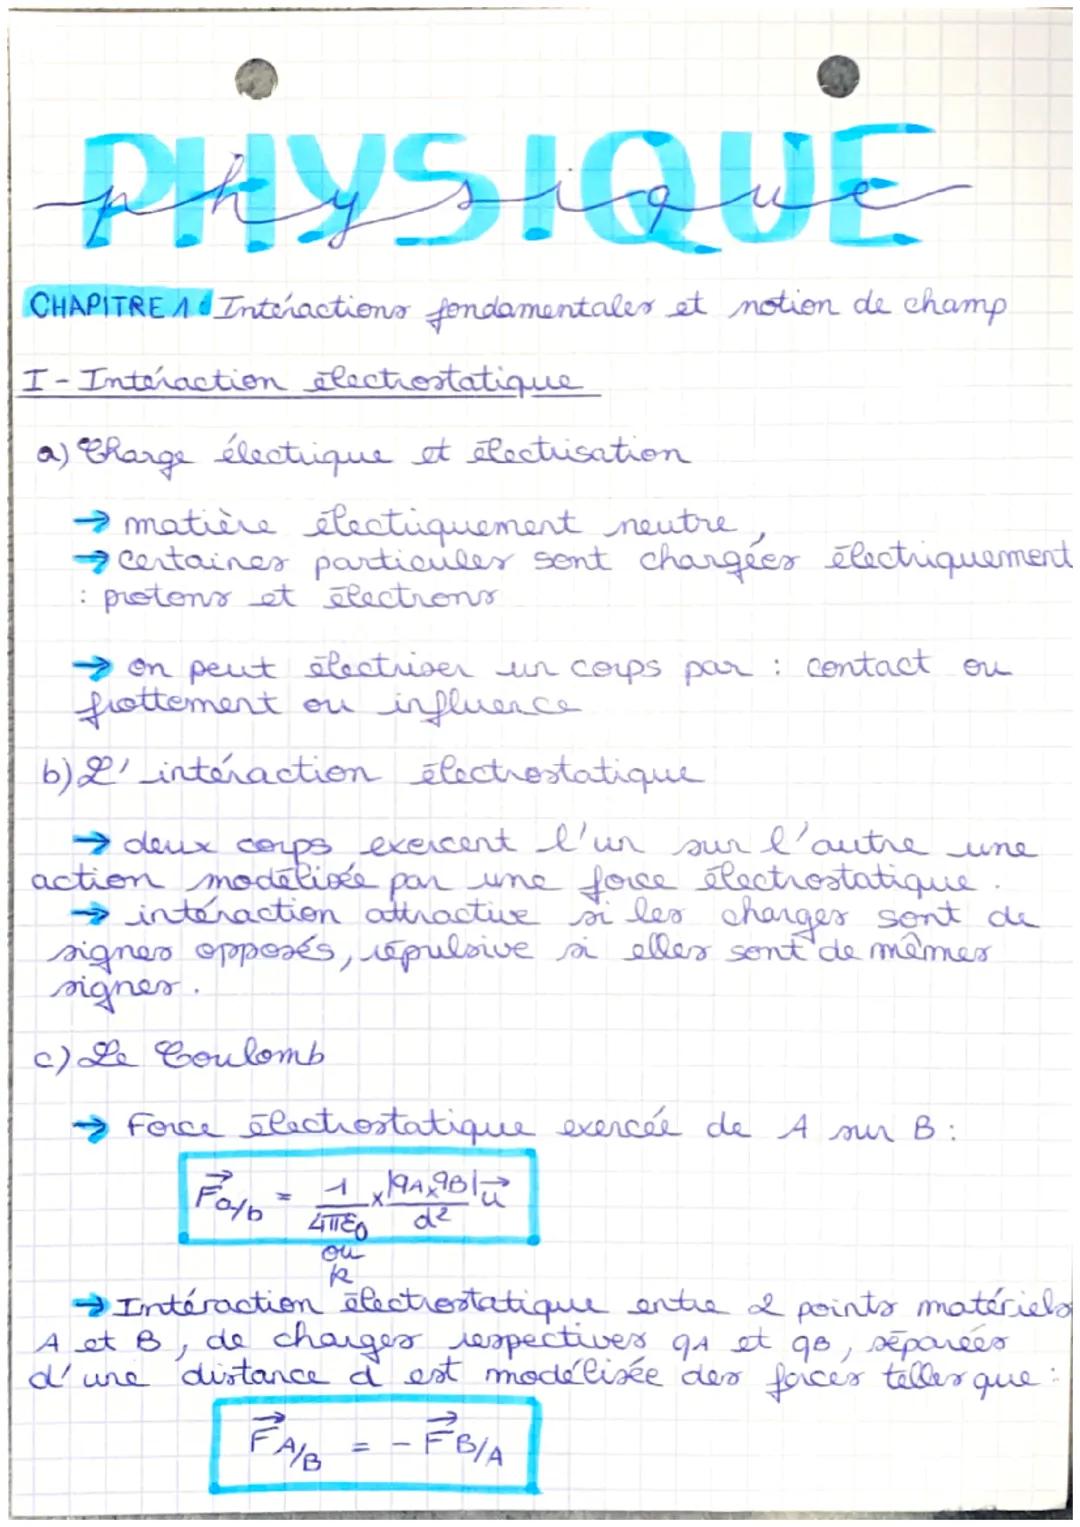 PHYSIQUE
physique
CHAPITRE 1 : Intéractions fondamentales et notion de champ
I - Intéraction électrostatique
a) Charge électrique et électrisation
→ matière électriquement neutre,
→ certaines particules sont chargées électriquement
: protons et électrons
→ on peut électriser un corps par : contact ou
frottement ou influence
b) L' intéraction électrostatique
→ deux corps exercent l'un sur l'autre une
action modélisée par une force électrostatique.
→ intéraction attractive si les charges sont de
signes opposés, répulsive si elles sont de mêmes
signes.
c) Le Coulomb
→ Force électrostatique exercée de A sur B :
F⃗a/b = 1/4πε₀ × |qA × qB|/d² u⃗
ou
k
→ Intéraction électrostatique entre 2 points matériels
A et B, de charges respectives qA et qB, séparées
d'une distance d est modélisée des forces telles que :
F⃗A/B = - F⃗B/A